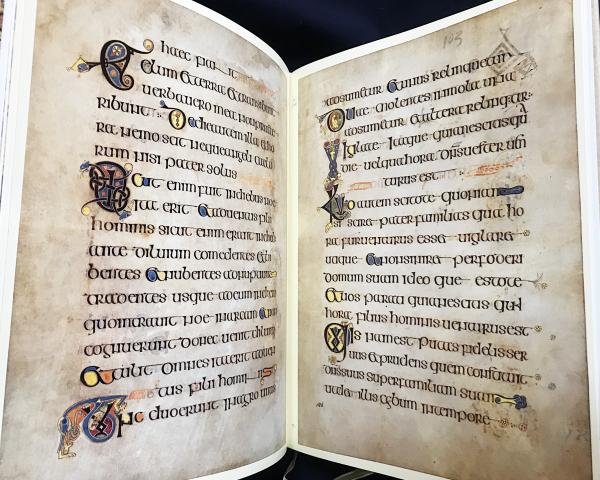 haec fiant
elum etterra
uerbauero mea
ribunt De die autem illa etho
ra nemo scit neque angeli caelo
rum nisi pater solus
Sicut enim fuit indiebus noe
ita erit etaduentus filii
hominis sicut enim erant indieb
ante diluium comedentes etbi
bentes etnubentes etnuptum
tradentes usque adeum diem
quointrauit noe inarcam etnon
cognuerunt donec uenit diluui
ettulit omnes itaerit aduen
tus filii hominis
Tunc duoerunt inagro unus
103
adsumetur etunus relinquetur
Duae molentes inmola una
adsumetur etaltera relinque
Uigilate itaque quianescitis qu
die uelquahora dnsuester uen
turus est
autem scitote quoniam
si pater familias qua ho
ra furuenturus esse uigilare
utique etnonsineret perfoderi
domum suam ideo que estote
etuos parati quianescitis qua
hora filius hominis uenturusest
Quis nam est putas fidelis ser
uus etprudens quem constituit
dnssuus superfamiliam suam
utdet illis cybum intempore